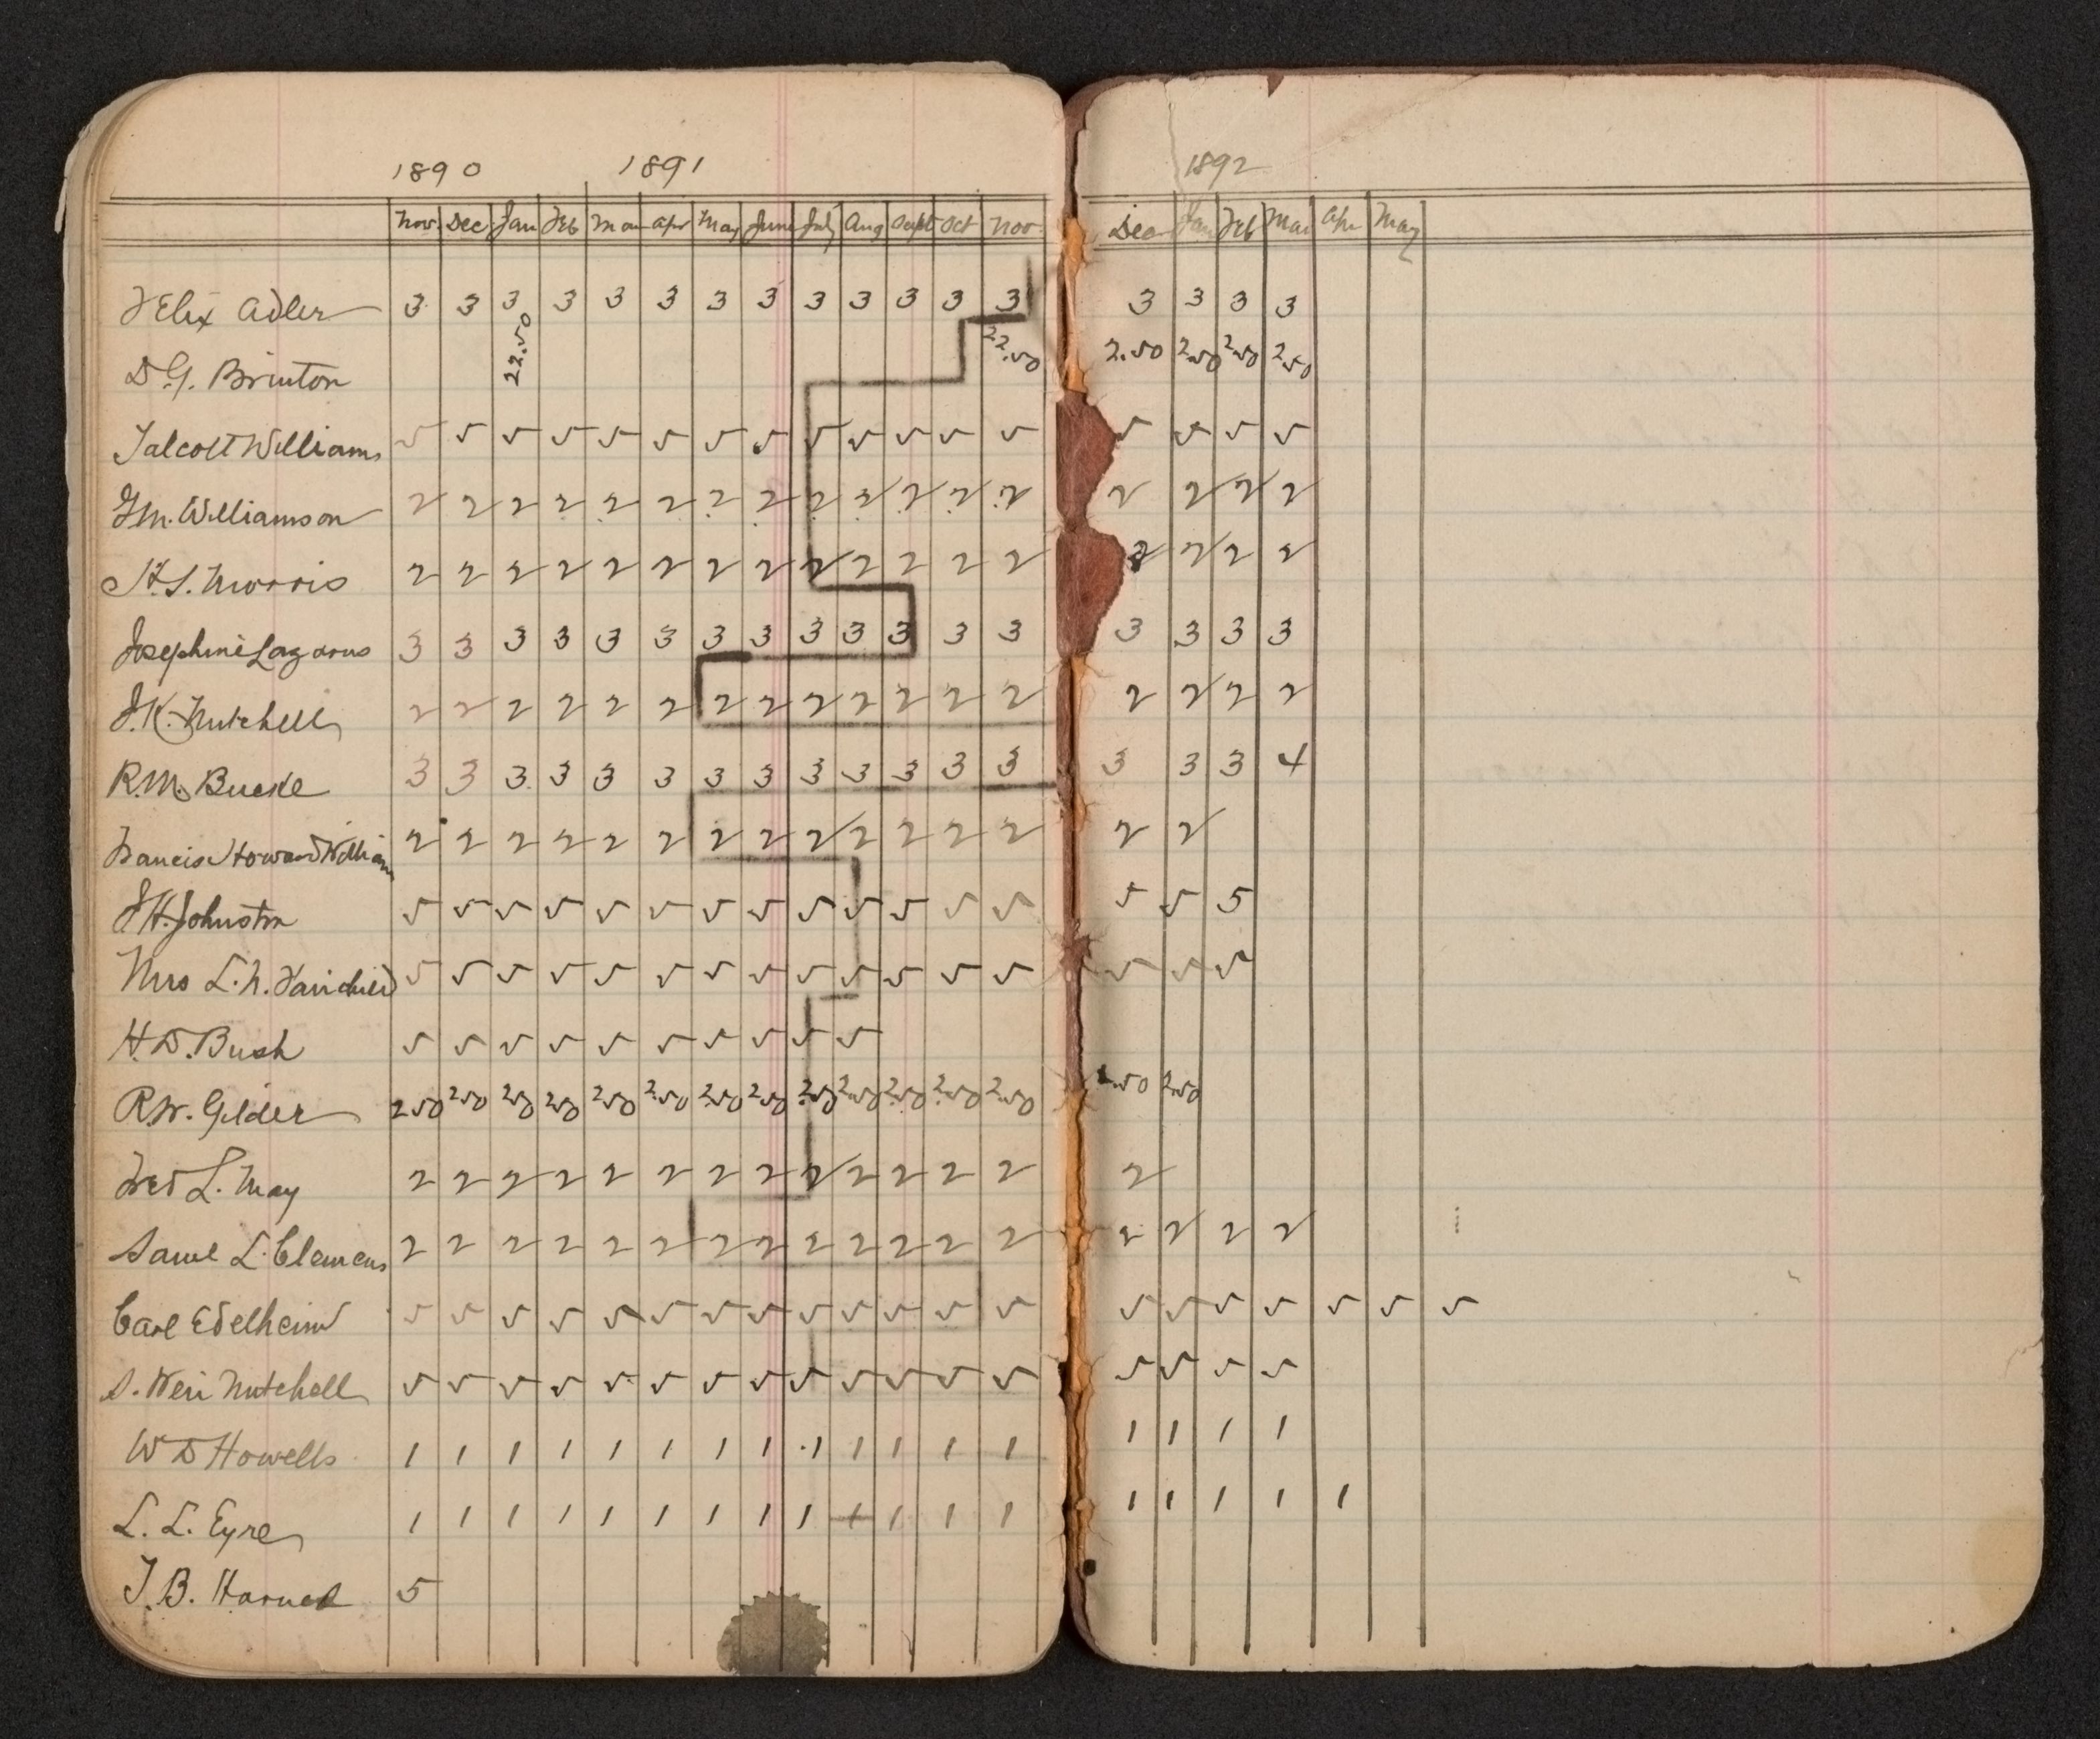 1890 1891 1892
Nov. Dec Jan Feb Mar Apr May June July Aug Sept Oct Nov. Dec Jan Feb Mar Apr May
Felix Adler 3 3 3 3 3 3 3 3 3 3 3 3 3 3 3 3 3
D.G. Brinton 22.50 22.50 2.50 2.50 2.50 2.50
Talcott Williams 5 5 5 5 5 5 5 5 5 5 5 5 5 5 5 5 5
G.M. Williamson 2 2 2 2 2 2 2 2 2 2 2 2 2 2 2 2 2
H.S. Morris 2 2 2 2 2 2 2 2 2 2 2 2 2 2 2 2 2
Josephine Lazarus 3 3 3 3 3 3 3 3 3 3 3 3 3 3 3 3 3
J.K. Mitchell 2 2 2 2 2 2 2 2 2 2 2 2 2 2 2 2 2
R.M. Bucke 3 3 3 3 3 3 3 3 3 3 3 3 3 3 3 3 4
Francis Howard William 2 2 2 2 2 2 2 2 2 2 2 2 2 2 2
J H Johnston 5 5 5 5 5 5 5 5 5 5 5 5 5 5 5 5
Mrs L.N. Fairchild 5 5 5 5 5 5 5 5 5 5 5 5 5 5 5 5
H.D. Bush 5 5 5 5 5 5 5 5 5 5
R.W. Gilder 2.50 2.50 2.50 2.50 2.50 2.50 2.50 2.50 2.50 2.50 2.50 2.50 2.50 2.50 2.50
Fred L. May 2 2 2 2 2 2 2 2 2 2 2 2 2 2
Saml L. Clemens 2 2 2 2 2 2 2 2 2 2 2 2 2 2 2 2 2
Carl Edelheim 5 5 5 5 5 5 5 5 5 5 5 5 5 5 5 5 5 5 5 5
S. Weir Mitchell 5 5 5 5 5 5 5 5 5 5 5 5 5 5 5 5 5
W D Howells 1 1 1 1 1 1 1 1 1 1 1 1 1 1 1 1 1
L. L. Eyre 1 1 1 1 1 1 1 1 1 1 1 1 1 1 1 1 1 1
T. B. Harned 5